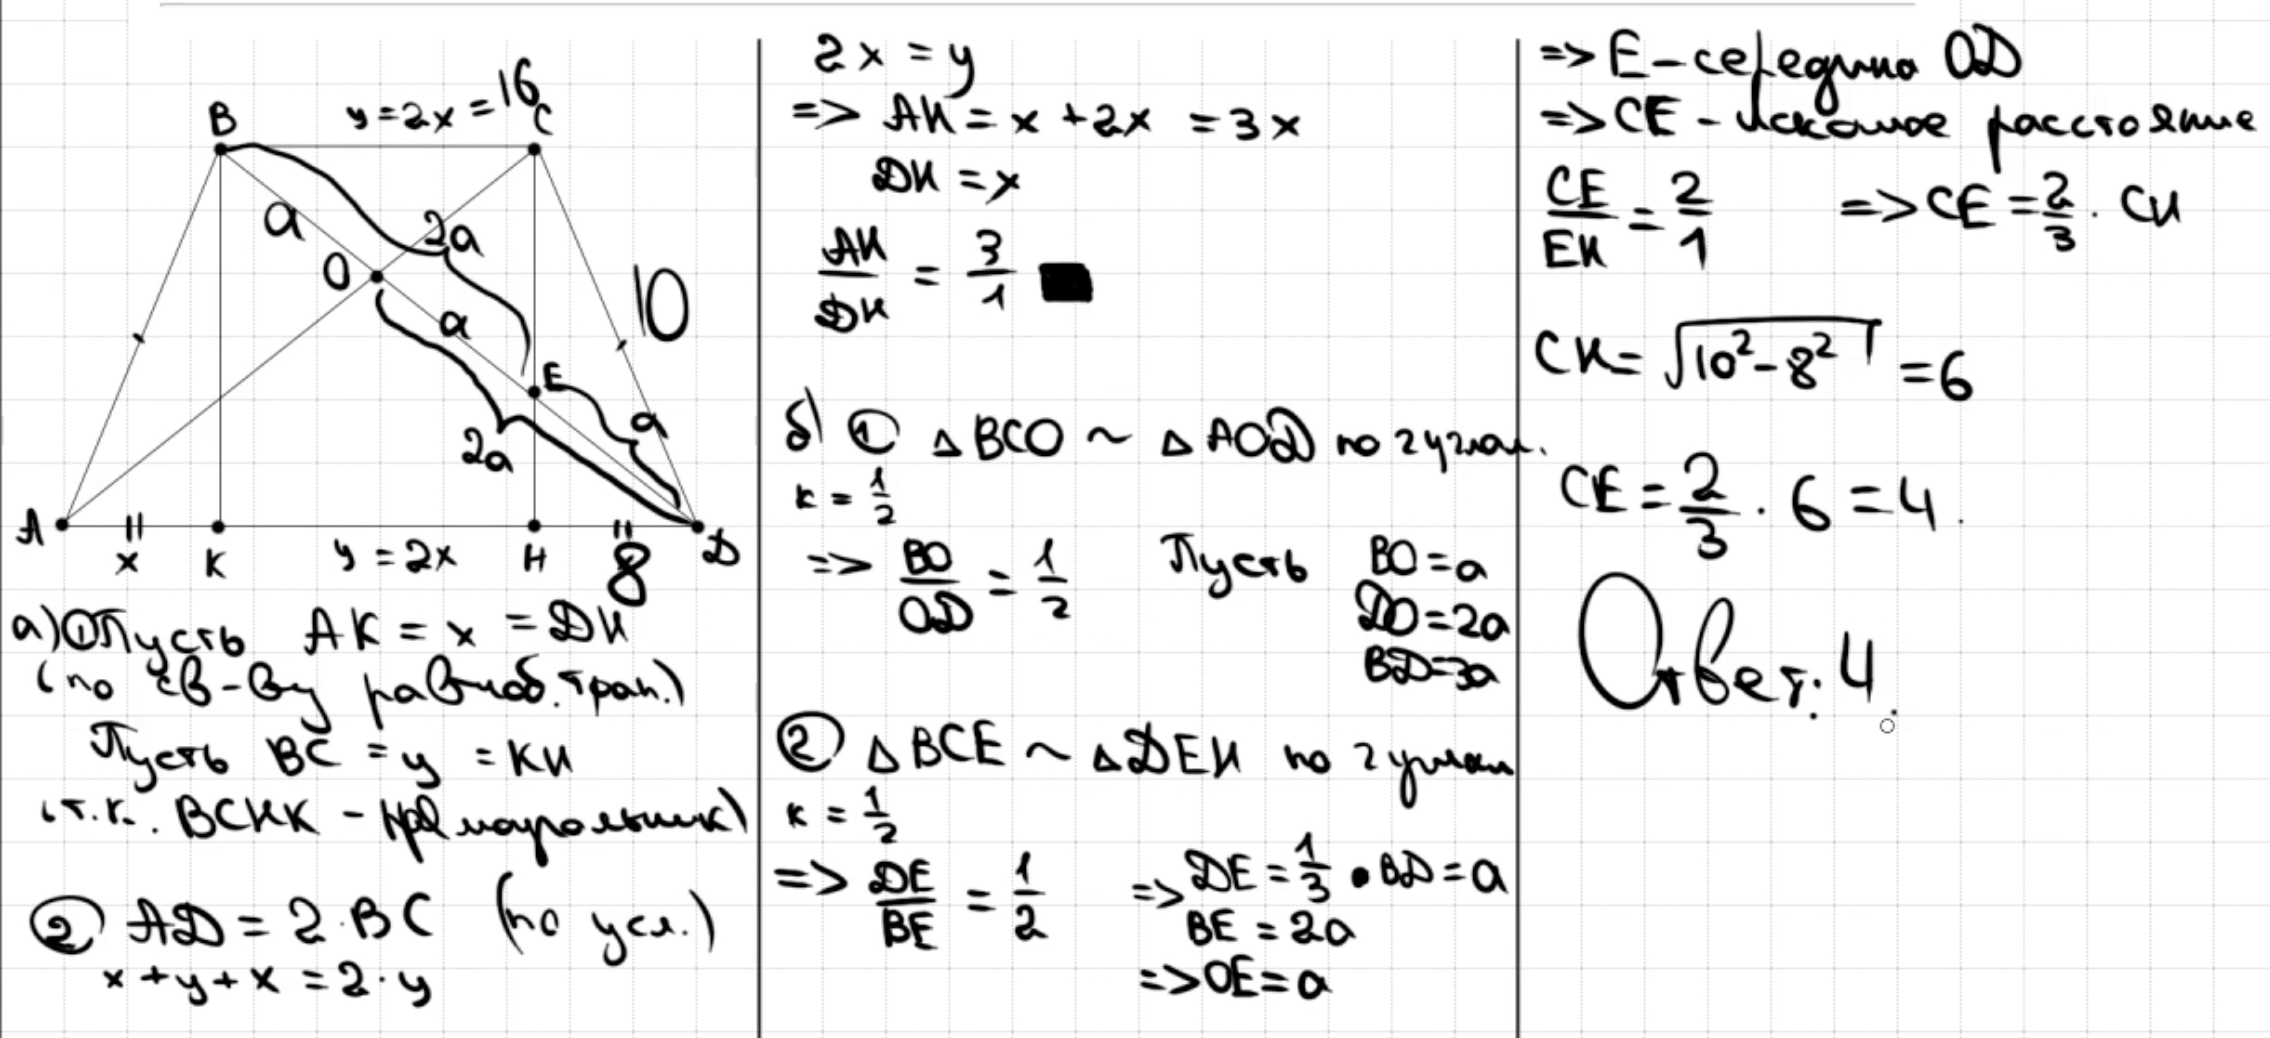 B y=2x=16 C
a 2a
O 10
a
E a
2a
A x K y=2x H 8 D
а) ① Пусть AK = x = DH
(по св-ву равноб. трап.)
Пусть BC = y = KH
(т.к. BCHK - прямоугольник)
② AD = 2·BC (по усл.)
x+y+x = 2·y
2x = y
=> AH = x+2x = 3x
DH = x
AH/DH = 3/1
б) ① △BCO ~ △AOD по 2 углам.
k = 1/2
=> BO/OD = 1/2 Пусть BO=a
DO=2a
BD=3a
② △BCE ~ △DEH по 2 углам
k = 1/2
=> DE/BE = 1/2 => DE = 1/3 · BD = a
BE = 2a
=> OE = a
=> E - середина OD
=> CE - искомое расстояние
CE/EH = 2/1 => CE = 2/3 · CH
CH = √10²-8² = 6
CE = 2/3 · 6 = 4.
Ответ: 4.